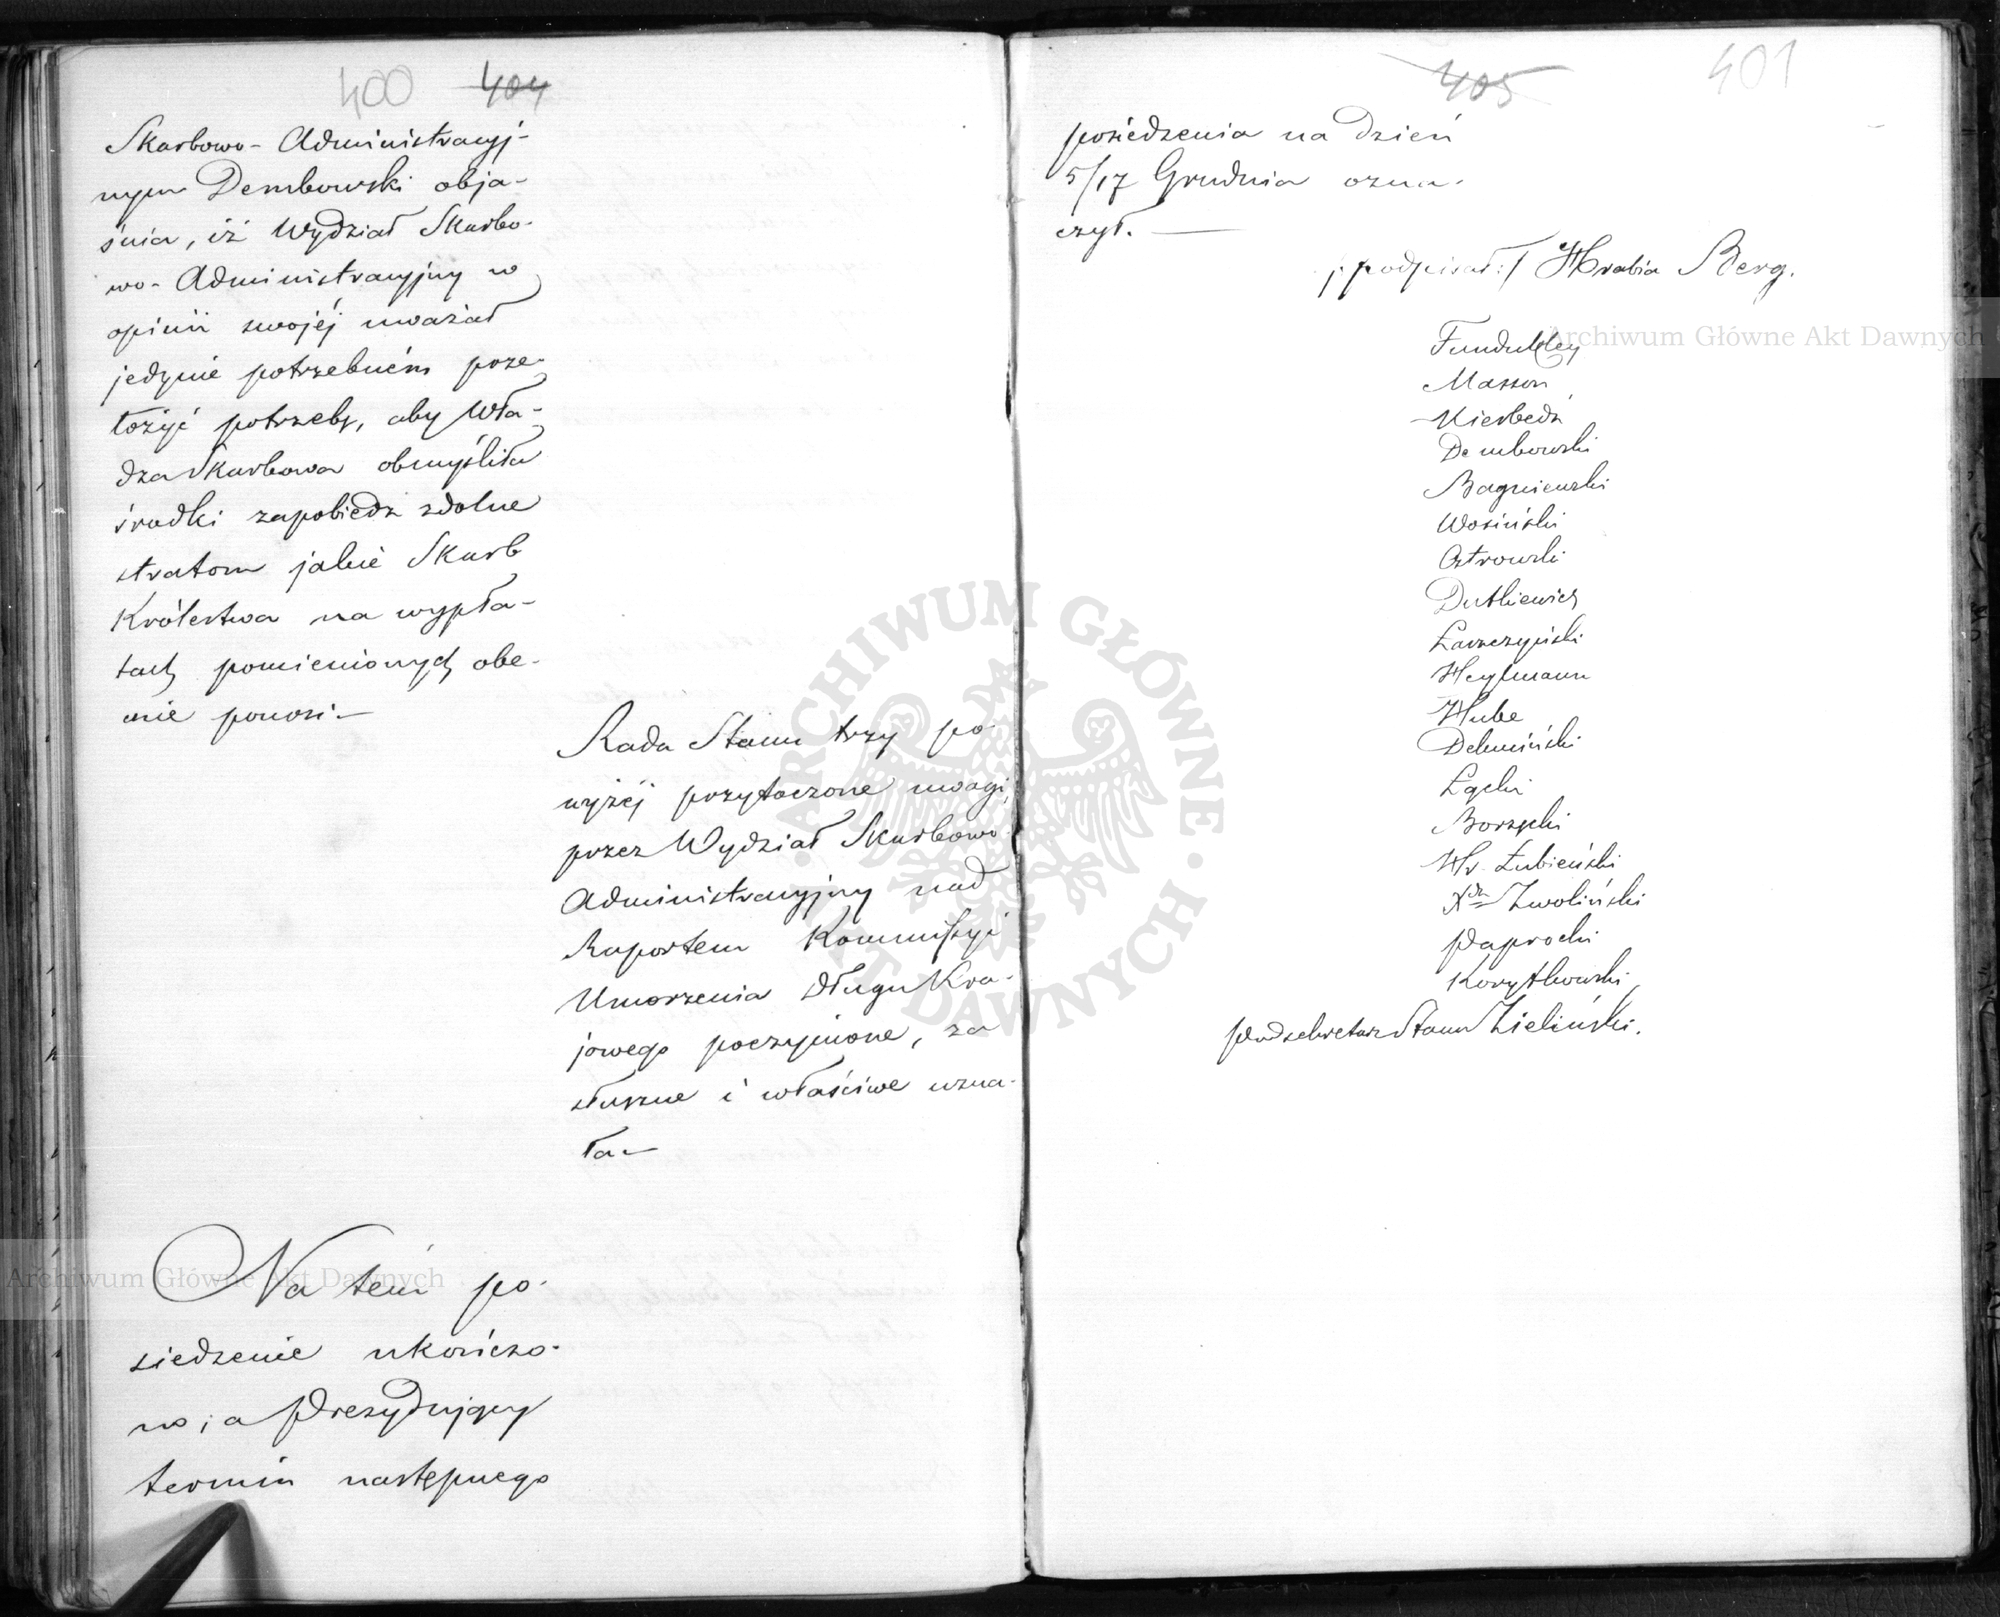 400 404
Skarbowo-Administracyj-
nym Dembowski obja-
śnia, iż Wydział Skarbo-
wo-Administracyjny w
opinii swojéj uważał
jedynie potrzebném prze-
łożyć potrzebę, aby Wła-
dza Skarbowa obmyśliła
środki zapobiedz zdolne
stratom jakie Skarb
Królestwa na wypła-
tach pomienionych obe-
cnie ponosi.—
Rada Stanu trzy po-
wyżéj przytoczone uwagi,
przez Wydział Skarbowo
Administracyjny nad
Raportem Kommissyi
Umorzenia Długu Kra-
jowego poczynione, za
słuszne i właściwe uzna-
ła.—
Na tém po-
siedzenie ukończo-
no, a Prezydujący
termin następnego
405 401
posiedzenia na dzień
5/17 Grudnia ozna-
czył. —
/:podpisał:/ Hrabia Berg.
Fundukley
Masson
Kierbedź
Dembowski
Bagniewski
Wosiński
Ostrowski
Dutkiewicz
Łaszczyński
Heylmann
Hube
Dekuciński
Łęcki
Borzęcki
Hr. Łubieński
Xdz Zwoliński
Paprocki
Korytkowski
Podsekretarz Stanu Zieliński.
Archiwum Główne Akt Dawnych
Archiwum Główne Akt Dawnych
ARCHIWUM GŁÓWNE · AKT DAWNYCH ·